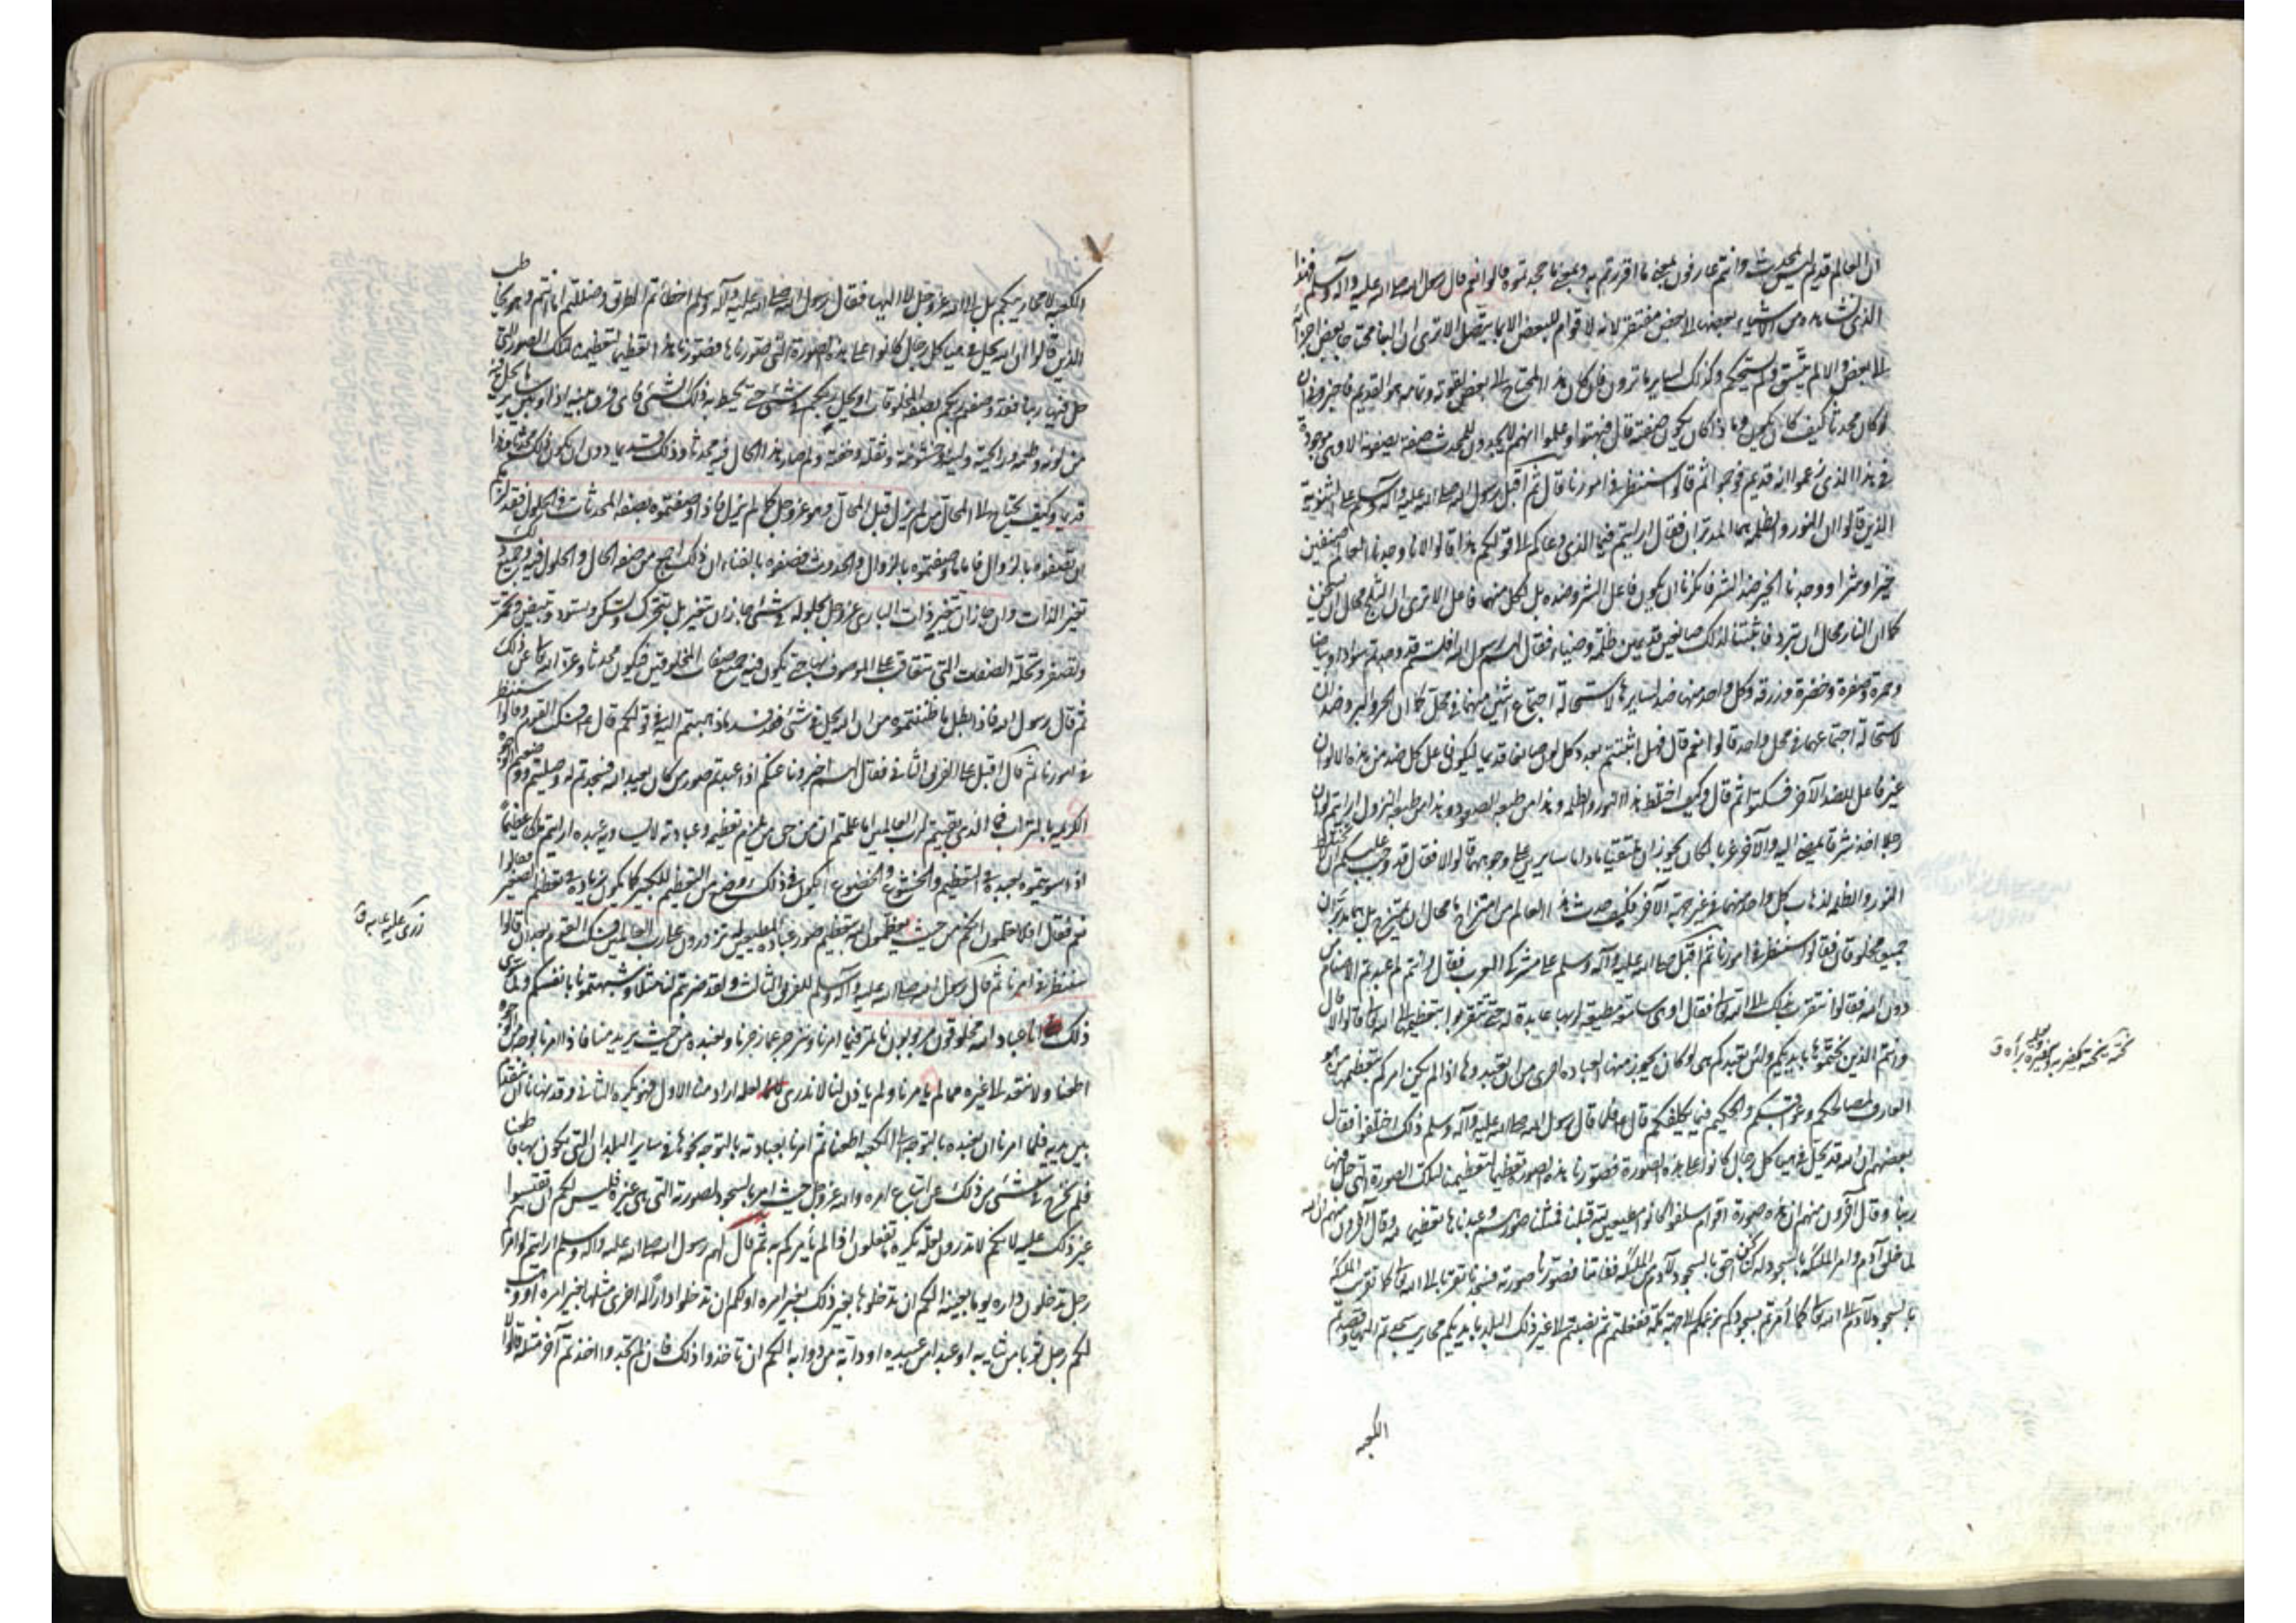 ان العالم قديم ليس بمحدث وانتم عارفون بمعنى ما اقررتم به وبمعنى ما جحدتموه قالوا نعم قال رسول الله صلى الله عليه وآله وسلم فهذا
الذي نشاهده من الاشياء بعضها الى بعض مفتقر لانه لا قوام للبعض الا بما يتصل الا ترى ان البناء محتاج بعض اجزائه
الى بعض والا لم يتسق ولم يستحكم وكذلك ساير ما ترون فان كان هذا المحتاج الى بعض لقوته وتمامه هو القديم فاخبروني ان
لو كان محدثا كيف كان يكون وما ذا كان يكون صفته قال فبهتوا وعلموا انهم لا يجدون للمحدث صفة يصفونه الا وهي موجودة
في هذا الذي زعموا انه قديم فوجموا ثم قالوا سننظر في امورنا قال ثم اقبل رسول الله صلى الله عليه وآله وسلم على الثنوية
الذين قالوا ان النور والظلمة هما المدبران فقال ارايتم فما الذي دعاكم الى قولكم هذا قالوا لانا وجدنا العالم صنفين
خيرا وشرا ووجدنا الخير ضد الشر فانكرنا ان يكون فاعل الشر وضده بل لكل منهما فاعل الا ترى ان الثلج محال ان يسخن
كما ان النار محال ان تبرد فاثبتنا لذلك صانعين قديمين ظلمة وضياء فقال لهم رسول الله افلستم قد وجدتم سوادا وبياضا
وحمرة وصفرة وخضرة وزرقة وكل واحد منها ضد لسايرها لاستحالة اجتماع اثنين منهما في محل كما ان الحر والبرد ضدان
لاستحالة اجتماعهما في محل واحد قالوا نعم قال فهل اثبتتم بعدد كل لون صانعا قديما ليكون فاعل كل ضد من هذه الالوان
غير فاعل للضد الآخر فسكتوا ثم قال وكيف اختلط هذا النور والظلمة وهذا من طبعه الصعود وهذا من طبعه النزول ارايتم لو ان
رجلا اخذ شرقا يمضي اليه والآخر غربا اكان يجوز ان يلتقيا ما داما سايرين على وجوههما قالوا لا فقال قد وجب عليكم ان لا يختلط
النور والظلمة لذهاب كل واحد منهما في غير جهة الآخر فكيف حدث هذا العالم من امتزاج ما محال ان يمتزج بل هما مدبران
جميعا مخلوقان فقالوا سننظر في امورنا ثم اقبل صلى الله عليه وآله وسلم على مشركي العرب فقال وانتم لم عبدتم الاصنام من
دون الله فقالوا نتقرب بذلك الى الله تعالى فقال او هي سامعة مطيعة لربها عابدة له حتى تتقربوا بتعظيمها الى الله تعالى قالوا لا قال
فانتم الذين نحتموها بايديكم ولئن تعبدكم هي لو كان يجوز منها العبادة احرى من ان تعبدوها اذا لم يكن امركم بتعظيمها من هو
العارف بمصالحكم وعواقبكم والحكيم فيما يكلفكم قال فلما قال رسول الله صلى الله عليه وآله وسلم ذلك اختلفوا فقال
بعضهم ان الله قد يحل في هياكل رجال كانوا على هذه الصورة فصورنا هذه الصور تعظيما لتعظيمنا لتلك الصورة التي حل فيها
ربنا وقال آخرون منهم ان هذه صورة اقوام سلفوا كانوا مطيعين لله قبلنا فمثلنا صورهم وعبدناها تعظيما لله وقال آخرون منهم ان الله
لما خلق آدم وامر الملئكة بالسجود له كنا نحن احق بالسجود لآدم من الملئكة ففاتنا فصورنا صورته فسجدنا تقربا الى الله تعالى كما تقربت الملئكة
بالسجود لآدم الى الله تعالى كما أمرتم بسجودكم بزعمكم الى جهة مكة ففعلتم ثم نصبتم الى غير ذلك البلد بايديكم محاريب سجدتم اليها وقصدتم
الكعبة
الكعبة لا محاريبكم بل الى الله عز وجل لا اليها فقال رسول الله صلى الله عليه وآله وسلم اخطأتم الطريق وضللتم اما انتم وهو يخاطب
الذين قالوا ان الله يحل في هياكل رجال كانوا على هذه الصورة التي صورناها فصورنا هذا تعظيما لتعظيمنا لتلك الصور التي
حل فيها ربنا فقد وصفتم ربكم بصفة المخلوقات او يحل ربكم في شئ حتى يحيط به ذلك الشئ فاي فرق بينه اذا وبين ساير ما يحل فيه
من لونه وطعمه ورايحته ولينه وخشونته وثقله وخفته ولم صار هذا الحال فيه محدثا وذلك قديما دون ان يكون ذلك محدثا وهذا
قديما وكيف يحتاج الى المحال من لم يزل قبل المحال وهو عز وجل كما لم يزل فاذا وصفتموه بصفة المحدثات في الحلول فقد لزمكم
ان تصفوه بالزوال فاما ما وصفتموه بالزوال والحدوث فصفوه بالفناء ان ذلك اجمع من صفة الحال والمحلول فيه وجميع ذلك
تغير الذات وان جاز ان تتغير ذات الباري عز وجل بحلوله في شئ جاز ان يتغير بل يتحرك ويسكن ويسود ويبيض ويحمر
ويصفر وتحله الصفات التي تتعاقب على الموصوف بها حتى يكون فيه جميع صفات المخلوقين فيكون محدثا وعز الله تعالى عن ذلك
ثم قال رسول الله فاذا بطل ما ظننتموه من ان الله يحل في شئ فقد فسد ما ذهبتم اليه في قولكم قال فسكت القوم وقالوا سننظر
في امورنا ثم قال اقبل على الفريق الثاني فقال لهم اخبرونا عنكم اذا عبدتم صور من كان يعبد الله فسجدتم له وصليتم ووضعتم الوجوه
الكريمة بالتراب فما الذي بقيتم لرب العالمين اما علمتم ان من حق من يلزم تعظيمه وعبادته لا يساويه عبده ارايتم ملكا عظيما
اذا سويتموه بعبده في التعظيم والخشوع والخضوع ايكون في ذلك وضع من التعظيم للكبير كما يكون زيادة في تعظيم الصغير فقالوا
نعم فقال افلا تعلمون انكم من حيث تعظمون الله بتعظيم صور عباده المطيعين له تزرون على رب العالمين فسكت القوم بعد ان قالوا
سننظر في امرنا ثم قال رسول الله صلى الله عليه وآله وسلم للفريق الثالث ولقد ضربتم لنا مثلا وشبهتمونا بانفسكم ولسنا سوى
ذلك انا عباد الله مخلوقون مربوبون نأتمر فيما امرنا وننزجر عما زجرنا ونعبده من حيث يريد منا فاذا امرنا بوجه من الوجوه
اطعنا ولا نتعد الى غيره مما لم يامرنا ولم ياذن لنا لانا لا ندري لعله اراد منا الاول فهو يكره الثاني وقد نهانا ان نتقدم
بين يديه فلما امرنا ان نعبده بالتوجه الى الكعبة اطعنا ثم امرنا بعبادته بالتوجه نحوها في ساير البلدان التي نكون بها فاطعنا
فلم نخرج في شئ من ذلك عن اتباع امره والله عز وجل حيث امر بالسجود لصورته التي هي غيره فليس لكم ان تقيسوا
غير ذلك عليه لانكم لا تدرون لعله يكره ما تفعلون اذا لم يأمركم به ثم قال لهم رسول الله صلى الله عليه وآله وسلم ارايتم لو امركم
رجل تدخلون داره يوما بعينه الكم ان تدخلوها بغير ذلك بغير امره او لكم ان تدخلوا دارا له اخرى مثلها بغير امره او وهب
لكم رجل ثوبا من ثيابه او عبدا من عبيده او دابة من دوابه الكم ان تاخذوا ذلك فان لم تجدوا اخذتم آخر مثله قالوا
زرى عليه عابه ق